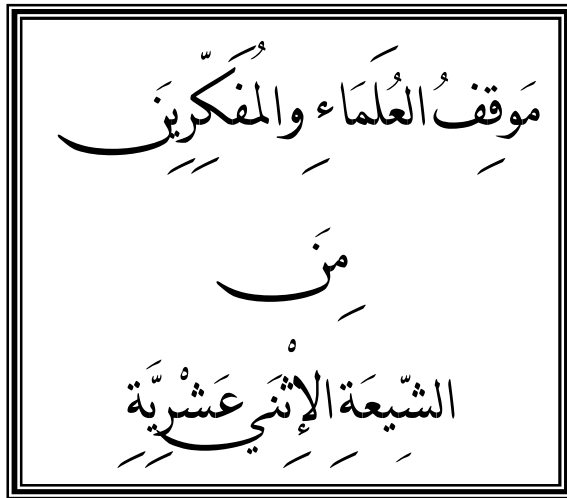 مَوقِفُ العُلَمَاءِ والمُفَكِّرِينَ
مِنَ
الشِّيعَةِ الإِثْنَي عَشْرِيَّةِ